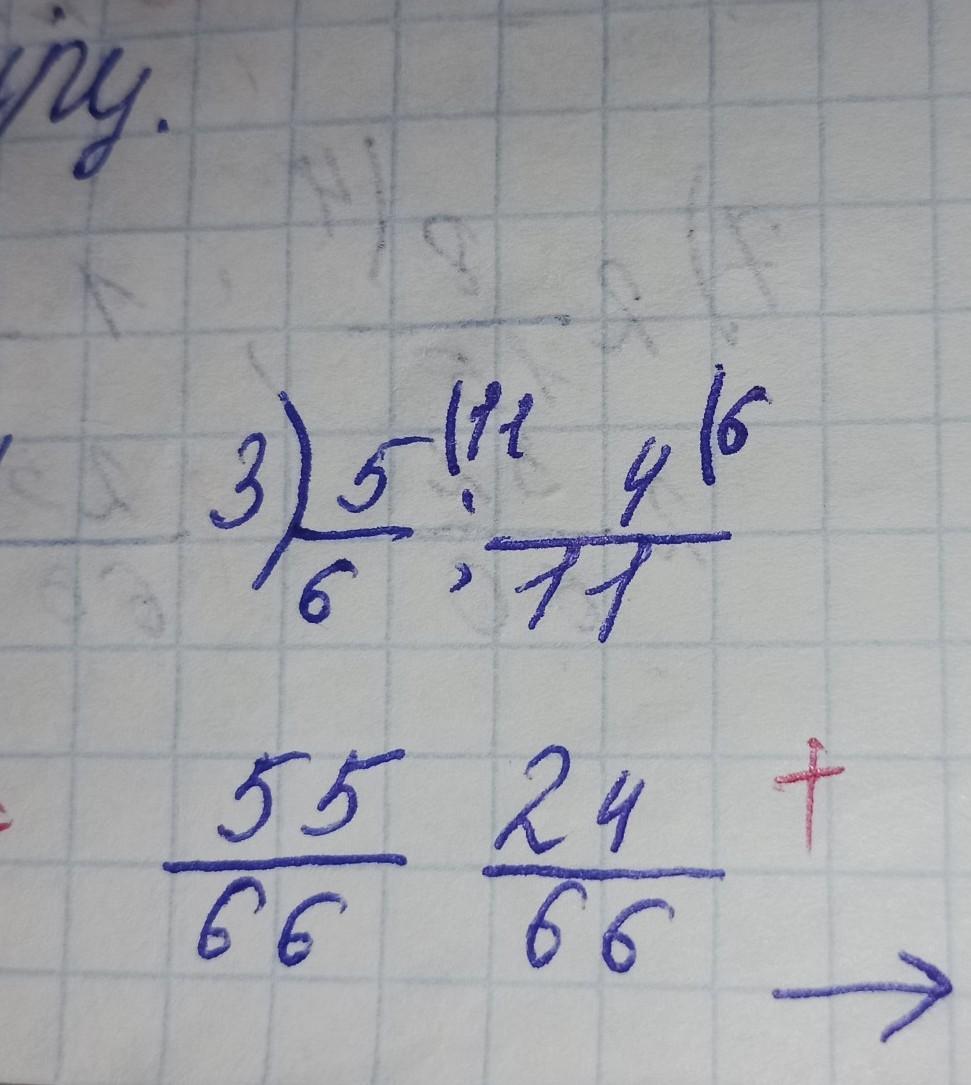 3) 5/6 (11 ; 4/11 (6
55/66 24/66 +
→